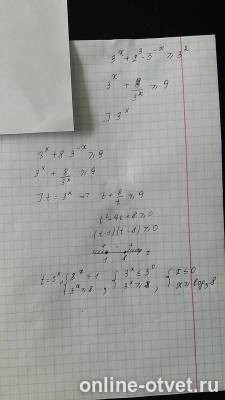 3^x + 2^3 · 3^-x ≥ 3^2
3^x + 8/3^x ≥ 9
3^x
3^x + 8·3^-x ≥ 9
3^x + 8/3^x ≥ 9
t = 3^x → t + 8/t ≥ 9
t² - 9t + 8 ≥ 0
(t-1)(t-8) ≥ 0
1 8 t
t = 3^x, { 3^x ≤ 1 { 3^x ≤ 3^0 { x ≤ 0
3^x ≥ 8 ; 3^x ≥ 8, x ≥ log₃8
online-otvet.ru